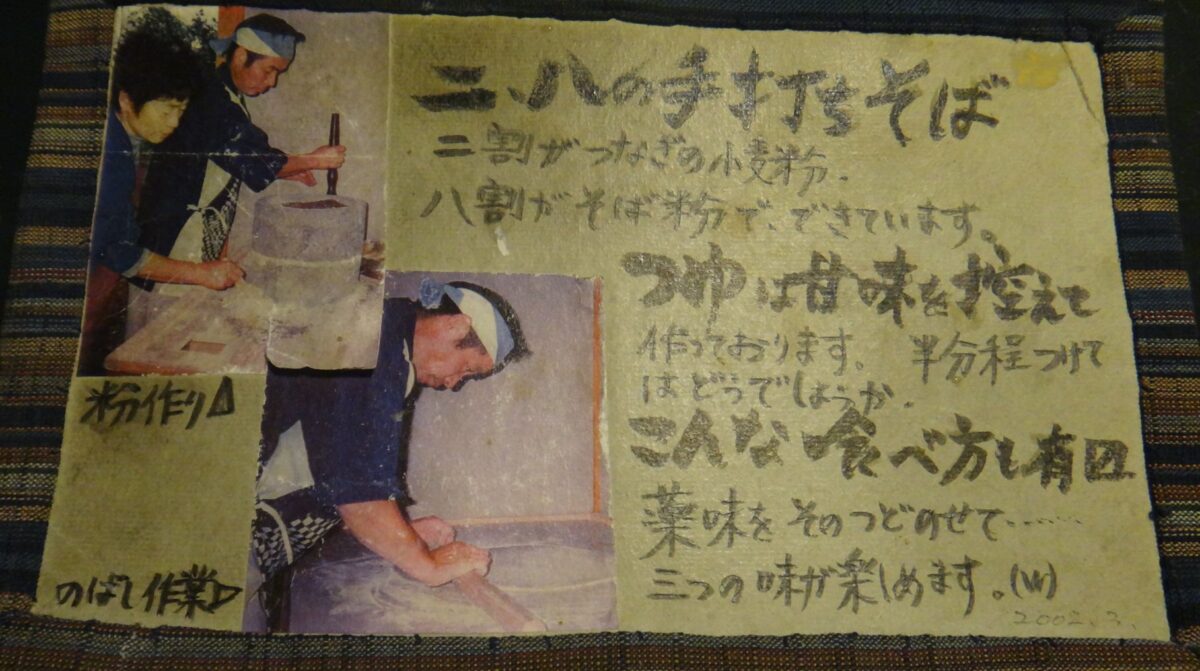 二、八の手打ちそば
二割がつなぎの小麦粉.
八割がそば粉で、できています。
つゆは甘味を控えて
作っております。 半分程つけて
はどうでしょうか.
こんな食べ方も有り
薬味をそのつどのせて……
三つの味が楽しめます。
2002.3.
粉作り△
のばし作業▷